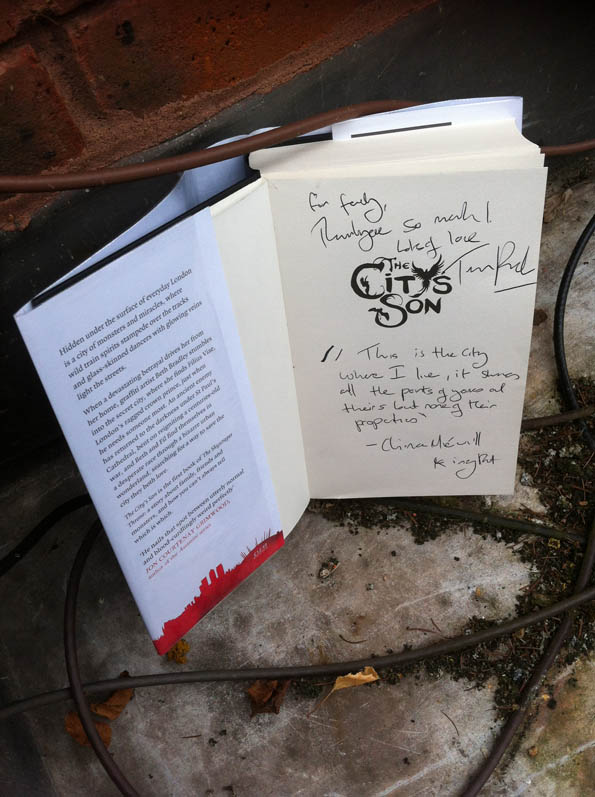 Hidden under the surface of everyday London
is a city of monsters and miracles, where
wild train spirits stampede over the tracks
and glass-skinned dancers with glowing veins
light the streets.
When a devastating betrayal drives her from
her home, graffiti artist Beth Bradley stumbles
into the secret city, where she finds Filius Viae,
London's ragged crown prince, just when
he needs someone most. An ancient enemy
has returned to the darkness under St Paul's
Cathedral, bent on reigniting a centuries-old
war, and Beth and Fil find themselves in
a desperate race through a bizarre urban
wonderland, searching for a way to save the
city they both love.
The City's Son is the first book of The Skyscraper
Throne: a story about family, friends and
monsters, and how you can't always tell
which is which.
'He nails that spot between utterly normal
and blood-curdlingly weird perfectly'
JON COURTENAY GRIMWOOD,
author of the
For
Thankyou so much!
Lots of love
Tom
THE
CITY'S
SON
" This is the city
where I live, it shares
all the parts of yours and
theirs but none of their
properties"
- China Miéville
King Rat